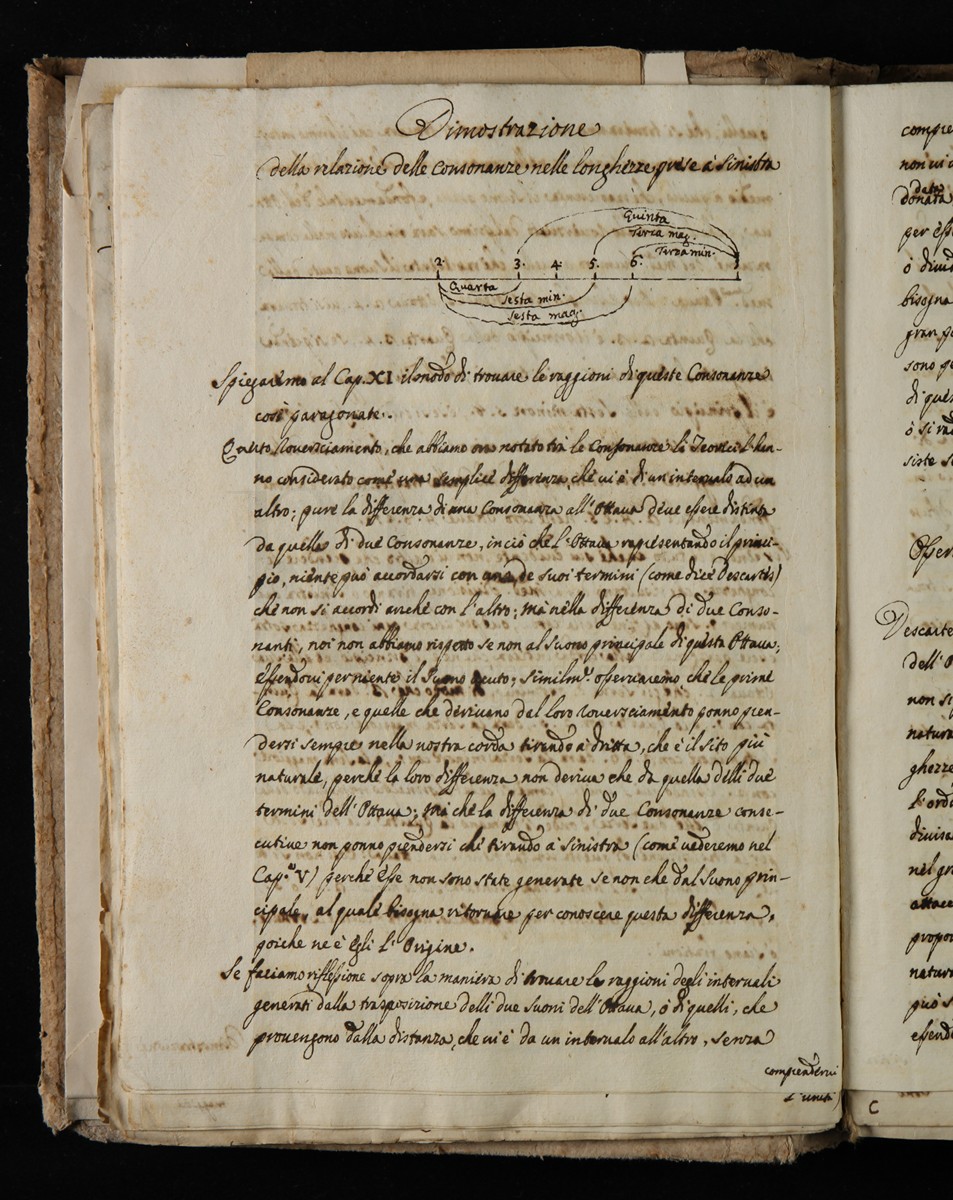 Dimostrazione
della relazione delle Consonanze nelle longhezze prese à Sinistra
Quinta
Terza mag.
Terza min.
2. 3. 4. 5. 6.
Quarta
Sesta min.
Sesta mag.
Spiegaremo al Cap. XI il modo di trouare le raggioni di queste Consonanze
così paragonate.
Questo rouersciamento, che abbiamo ora notato trà le Consonanze li Teorici l'han-
no considerato come una semplice differenza, che ui è di un interuallo ad un
altro; pure la differenza di una Consonanza all'Ottaua deue essere distinta
da quella di due Consonanze, in ciò che l'Ottaua rapresentando il princi-
pio, niente può accordarsi con uno de suoi termini (come dice Descartes)
che non si accordi anche con l'altro; mà nella differenza di due Conso-
nanti, noi non abbiamo rispetto se non al Suono principale di questa Ottaua,
essendoui per niente il Suono acuto; similm.te osseruaremo, che le prime
Consonanze, e quelle che deriuano dal loro rouersciamento ponno pren-
dersi sempre nella nostra corda tirando à dritta, che è il sito più
naturale, perche la loro differenza non deriua che da quella delli due
termini dell'Ottaua; Mà che la differenza di due Consonanze conse-
cutiue non ponno prendersi che tirando à sinistra (come uederemo nel
Cap.o V) perche esse non sono state generate se non che dal Suono prin-
cipale, al quale bisogna ritornare per conoscere questa differenza,
poiche ne è egli l'Origine.
Se faciamo riflessione sopra la maniera di trouare le raggioni degli interualli
generati dalla trasposizione delli due suoni dell'Ottaua, ò di quelli, che
prouengono dalla distanza, che ui è da un interuallo all'altro, senza
comprenderui
compre
non ui
data
donata
per esse
ò diuid
bisogna
gran pa
sono
di que
ò si
siste
Osser
Descarte
dell'O
non si
natura
ghezze
l'ord
diuisa
nel gr
attacc
propor
natura
può s
essend
C